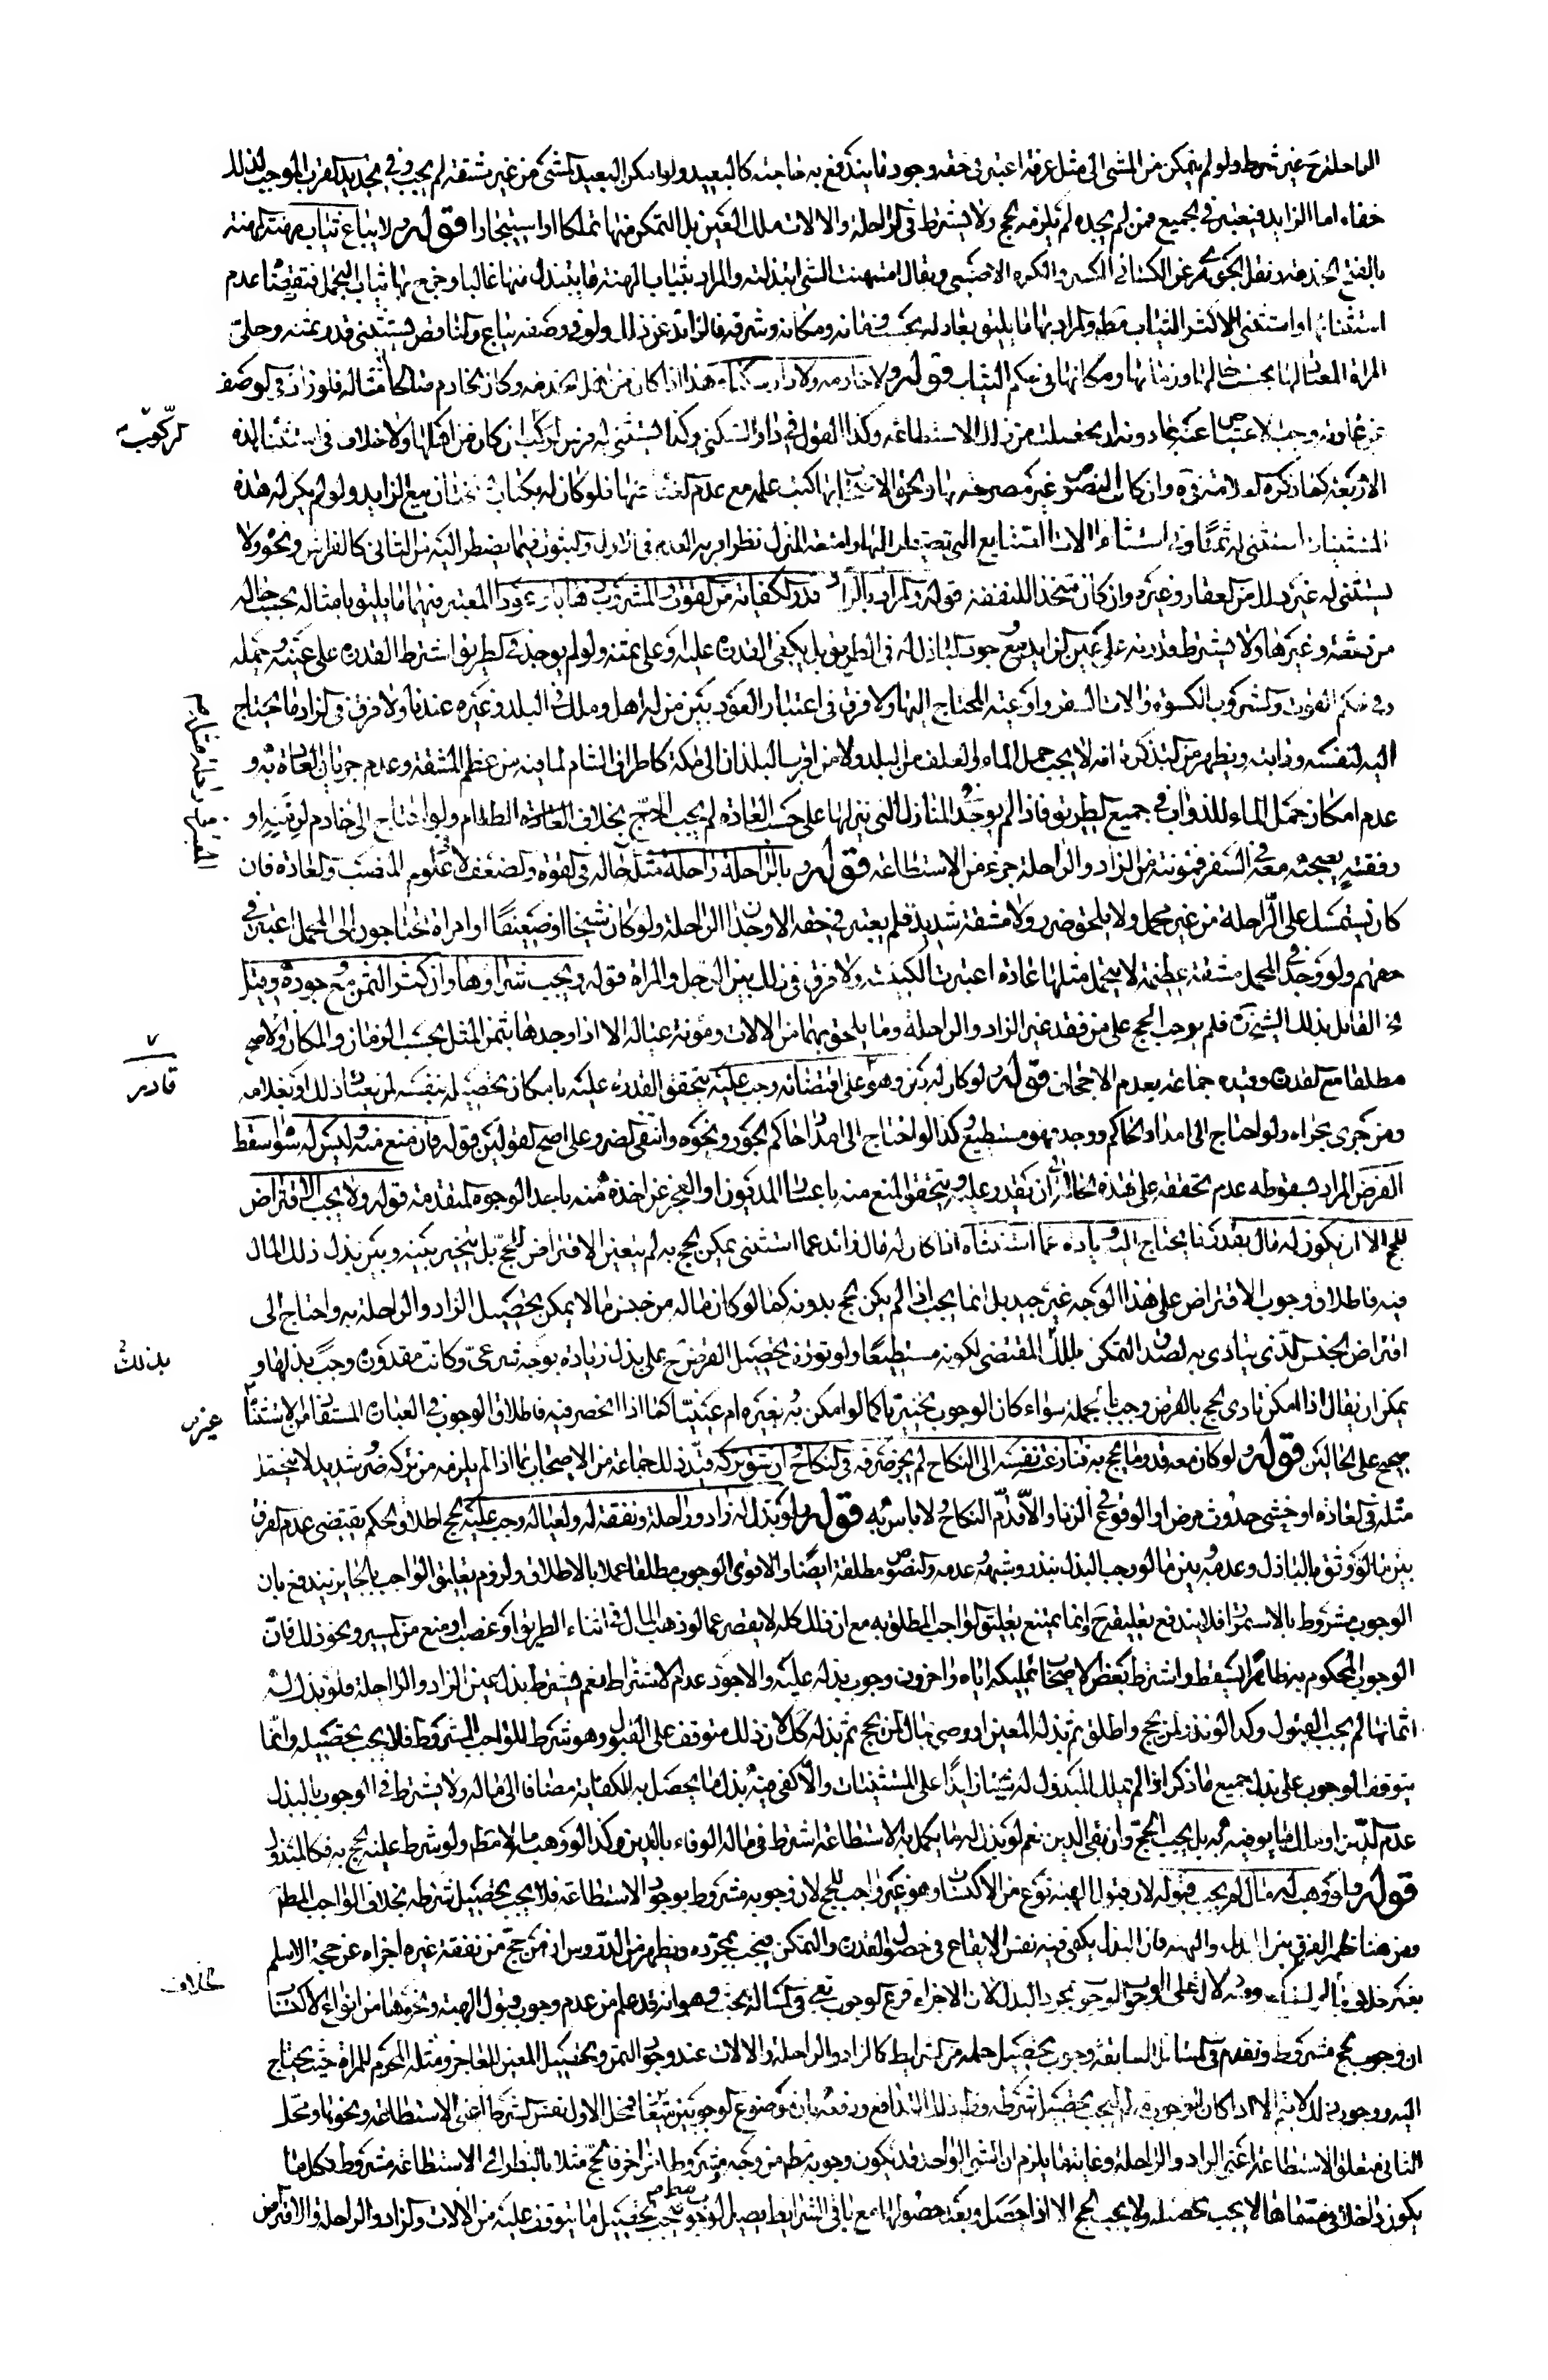 الراحلة ح غير شرط ولو لم يتمكن من المشي الى مثل عرفة اعتبر في حقه وجود ما يندفع به حاجته كالبعيد ولو امكن البعيد المشي من غير مشقة لم يجب وفي تحديد القرب الموجب لذلك
خفاء اما الزاد فيعتبر في الجميع فمن لم يجده لم يلزمه الحج ولا يشترط في الراحلة والالات ملك العين بل التمكن منها تملكا او استيجارا قوله ولا يباع ثياب مهنته المهنة
بالفتح الخدمة ونقل الجوهري عن الكسائي الكسر وانكره الاصمعي ويقال امتهنت الشي ابتذلته والمراد بثياب المهنة ما يبتذل منها غالبا وخرج بها ثياب التجمل فتقتضيه عدم
استثنائها واستثنى الاكثر الثياب مط والمراد بها ما يليق بعادله بحسب زمانه ومكانه وشرفه فالزائد عن ذلك ولو في وصفه يباع والناقص يستثنى قدر ثمنه وحلي
المراة المعتاد لها بحسب حالها وزمانها ومكانها في حكم الثياب قوله ولا خادمه ولا دار سكناه هذا اذا كان من اهل الخدمة وكان الخادم صالحا لامثاله فلو زاد في الوصف
عن عادته وجب الاعتياض عنه بما دونه اذا حصلت من ذلك الاستطاعة وكذا القول في دار السكنى وكذا يستثنى له فرس الركوب ان كان من اهلها ولا خلاف في استثناء هذه
الاربعة كما ذكره العلامة في كره وان كان النصوص غير مصرحة بها والحق الاصحاب بها كتب علمه مع عدم الغنا عنها فلو كان له بكتاب نسختان بيع الزايد ولو لم يكن له هذه
المستثنيات استثنى له ثمنها وفي استثناء الات الصنايع التي تضطر اليها وامتعة المنزل نظر اقربه العدم في الاول والثبوت فيما يضطر اليه من الثاني كالفراش ونحوه ولا
يستثنى له غير ذلك من العقار وغيره وان كان متخذا للنفقة قوله والمراد بالزاد قدر الكفاية من القوت والمشروب ذهابا وعودا المعتبر فيهما ما يليق بامثاله بحسب حاله
من نفقة وغيرها ولا يشترط قدرته على عين الزاد مع وجود الباذل له في الطريق بل يكفي القدرة عليه وعلى ثمنه ولو لم يوجد في الطريق اشترط القدرة على عينه وحمله
وفي حكم القوت والمشروب الكسوة والات السفر واوعيته المحتاج اليها ولا فرق في اعتبار العود بين من له اهل وملك في البلد وغيره عندنا ولا فرق في الزاد بما يحتاج
اليه لنفسه ودابته ويظهر من التذكرة انه لا يجب حمل الماء والعلف من البلد ولا من اقرب البلدان الى مكة كاطراف الشام لما فيه من عظم المشقة وعدم جريان العادة به و
عدم امكان حمل الماء للدواب في جميع الطريق فاذا لم يوجد في المنازل التي ينزلها على حسب العادة لم يجب الحج بخلاف العادة الطعام ولو احتاج الى خادم لرتبته او
رفقته يصحبه معه في السفر فمؤنته من الزاد والراحلة جزء من الاستطاعة قوله وبالراحلة راحلة مثله حاله في القوة والضعف لا في علو المنصب والعادة فان
كان يستمسك على الراحلة من غير محمل ولا يلحقه ضرر ولا مشقة شديدة فلم يعتبر في حقه الا وجدان الراحلة ولو كان شيخا او ضعيفا او امراة تحتاجون الى المحمل اعتبر في
حقهم ولو وجد في المحمل مشقة عظيمة لا يتحمل مثلها عادة اعتبرت الكنيسة ولا فرق في ذلك بين الرجل والمراة قوله ويجب شراؤها وان كثر الثمن مع وجوده وقيل
القائل بذلك الشيخ ره فلم يوجب الحج على من فقد غير الزاد والراحلة وما يلحق بهما من الالات ومؤنة عياله الا اذا وجدها بثمن المثل بحسب الزمان والمكان والاصح
مطلقا مع القدرة وقيده جماعة بعدم الاجحاف قوله ولو كان له دين وهو على اقتضائه وجب عليه يتحقق القدرة عليه بامكان تحصيله بنفسه لو يعد ذلك او بغلامه
ومن جرى مجراه ولو احتاج الى امداد الحاكم ووجده فهو مستطيع وكذا لو احتاج الى امداد حاكم الجور ونحوه وانتفى الضرر على اصح القولين قوله فان منع منه وليس له سواه سقط
الفرض المراد بسقوطه عدم تحققه على هذه الحال الى ان يقدر عليه ويتحقق المنع منه باعسار المديون او العجز عن اخذه منه باحد الوجوه المتقدمة قوله ولا يجب الاقتراض
للحج الا ان يكون له مال بقدر ما يحتاج اليه زيادة عما استثناه اذا كان له مال زائد عما استثنى يمكن الحج به لم يتعين الاقتراض للحج بل يتخير بينه وبين بذل ذلك المال
فيه فاطلاق وجوب الاقتراض على هذا الوجه غير جيد بل انما يجب اذا لم يكن الحج بدونه كما لو كان ماله من جنس ما لا يمكن تحصيل الزاد والراحلة به واحتاج الى
اقتراض الجنس الذي يتادى به لصدق التمكن بذلك المقتضي لكونه مستطيعا ولو توقف تحصيل القرض ح على بذل زيادة بوجه شرعي وكانت مقدورة وجب بذلها و
يمكن ان يقال اذا امكن تادي الحج بالقرض وجب بالجملة سواء كان الوجوب تخييريا كما لو امكن به بغيره ام عينيا كما اذا انحصر فيه فاطلاق الوجوب في العبارة المستفاد من الاستثناء
صحيح على الحالين قوله ولو كان معه قدر ما يحج به فنازعته نفسه الى النكاح لم يجز صرفه في النكاح وان شق تركه قيد ذلك جماعة من الاصحاب بما اذا لم يلزمه من تركه ضرر شديد لا يتحمل
مثله في العادة او خشي حدوث مرض او الوقوع في الزنا والا قدم النكاح ولا باس به قوله ولو بذل له زاد وراحلة ونفقة له ولعياله وجب عليه الحج اطلاق الحكم يقتضي عدم الفرق
بين ما لو وثق بالباذل وعدمه وبين ما لو وجب البذل بنذر وشبهه وعدمه والنصوص مطلقة ايضا والاقوى الوجوب مطلقا عملا بالاطلاق ولزوم تعليق الواجب بالجايز يندفع بان
الوجوب مشروط بالاستمرار فلا يندفع بتعليقه ح وانما يمتنع تعليق الواجب المطلق به مع ان ذلك كله لا يقصر عما لو ذهب المال في اثناء الطريق او غصب او منع من المسير ونحو ذلك فان
الوجوب المحكوم به ظاهرا يسقط واشترط بعض الاصحاب تمليكه اياه واخرون وجوب بذله عليه والاجود عدم الاشتراط نعم يشترط بذل عين الزاد والراحلة فلو بذل له
اثمانهما لم يجب القبول وكذا لو نذر لمن يحج واطلق ثم بذله المعين او اوصى بمال لمن يحج ثم بذله كل لان ذلك متوقف على القبول وهو شرط للواجب المشروط فلا يجب تحصيله وانما
يتوقف الوجوب على بذل جميع ما ذكر اذا لم يملك المبذول له شيئا زايدا على المستثنيات والا كفى فيه بذل ما يحصل به الكفاية مضافا الى ماله ولا يشترط في الوجوب بالبذل
عدم الدين او ملك ما يوفيه به بل يجب الحج وان بقي الدين نعم لو بذل له ما يكمل به الاستطاعة اشترط في ماله الوفاء بالدين وكذا لو وهب مالا مط ولو شرط عليه الحج به فكالمبذول
قوله ولو وهب له مال لم يجب قبوله لان قبول الهبة نوع من الاكتساب وهو غير واجب للحج لان وجوبه مشروط بوجود الاستطاعة فلا يجب تحصيل شرطه بخلاف الواجب المط
ومن هنا ظهر الفرق بين البذل والهبة فان البذل يكفي فيه نفس الايقاع في حصول القدرة والتمكن فيجب بمجرده ويظهر من الدروس ان من حج من نفقة غيره اجزاه عن حجة الاسلم
بغير خلاف الوجوب بمجرد البذل لان الاجزاء فرع الوجوب بقي في المسالة بحث وهو انه قد علم من عدم وجوب قبول الهبة ونحوها من انواع الاكتساب
ان وجوب الحج مشروط وتقدم في المسائل السابقة وجوب تحصيل جملة من الشرايط كالزاد والراحلة والالات عند وجود الثمن وتحصيل المعين للعاجز ومثله المحرم للمراة حيث يحتاج
اليه ووجوب ذلك لا يتم الا اذا كان لم يجب تحصيل شرطه وظ ذلك التدافع ودفعه بان موضوع الوجوبين فمحل الاول نفس الشرط اعني الاستطاعة ونحوها ومحل
الثاني متعلق الاستطاعة اعني الزاد والراحلة وغايتها يلزم ان الشي الواحد قد يكون وجوبه مط من وجه مشروطا من اخر فالحج مثلا بالنظر الى الاستطاعة مشروط فكل ما
يكون داخلا في مسماها لا يجب تحصيله ولا يجب الحج الا اذا حصل وبعد حصولها مع باقي الشرايط يصير الوجوب مطلقا فيجب تحصيل ما يتوقف عليه من الالات والزاد والراحلة والاقتراض
الركوب
قادر
بذلك
غير
خلاف